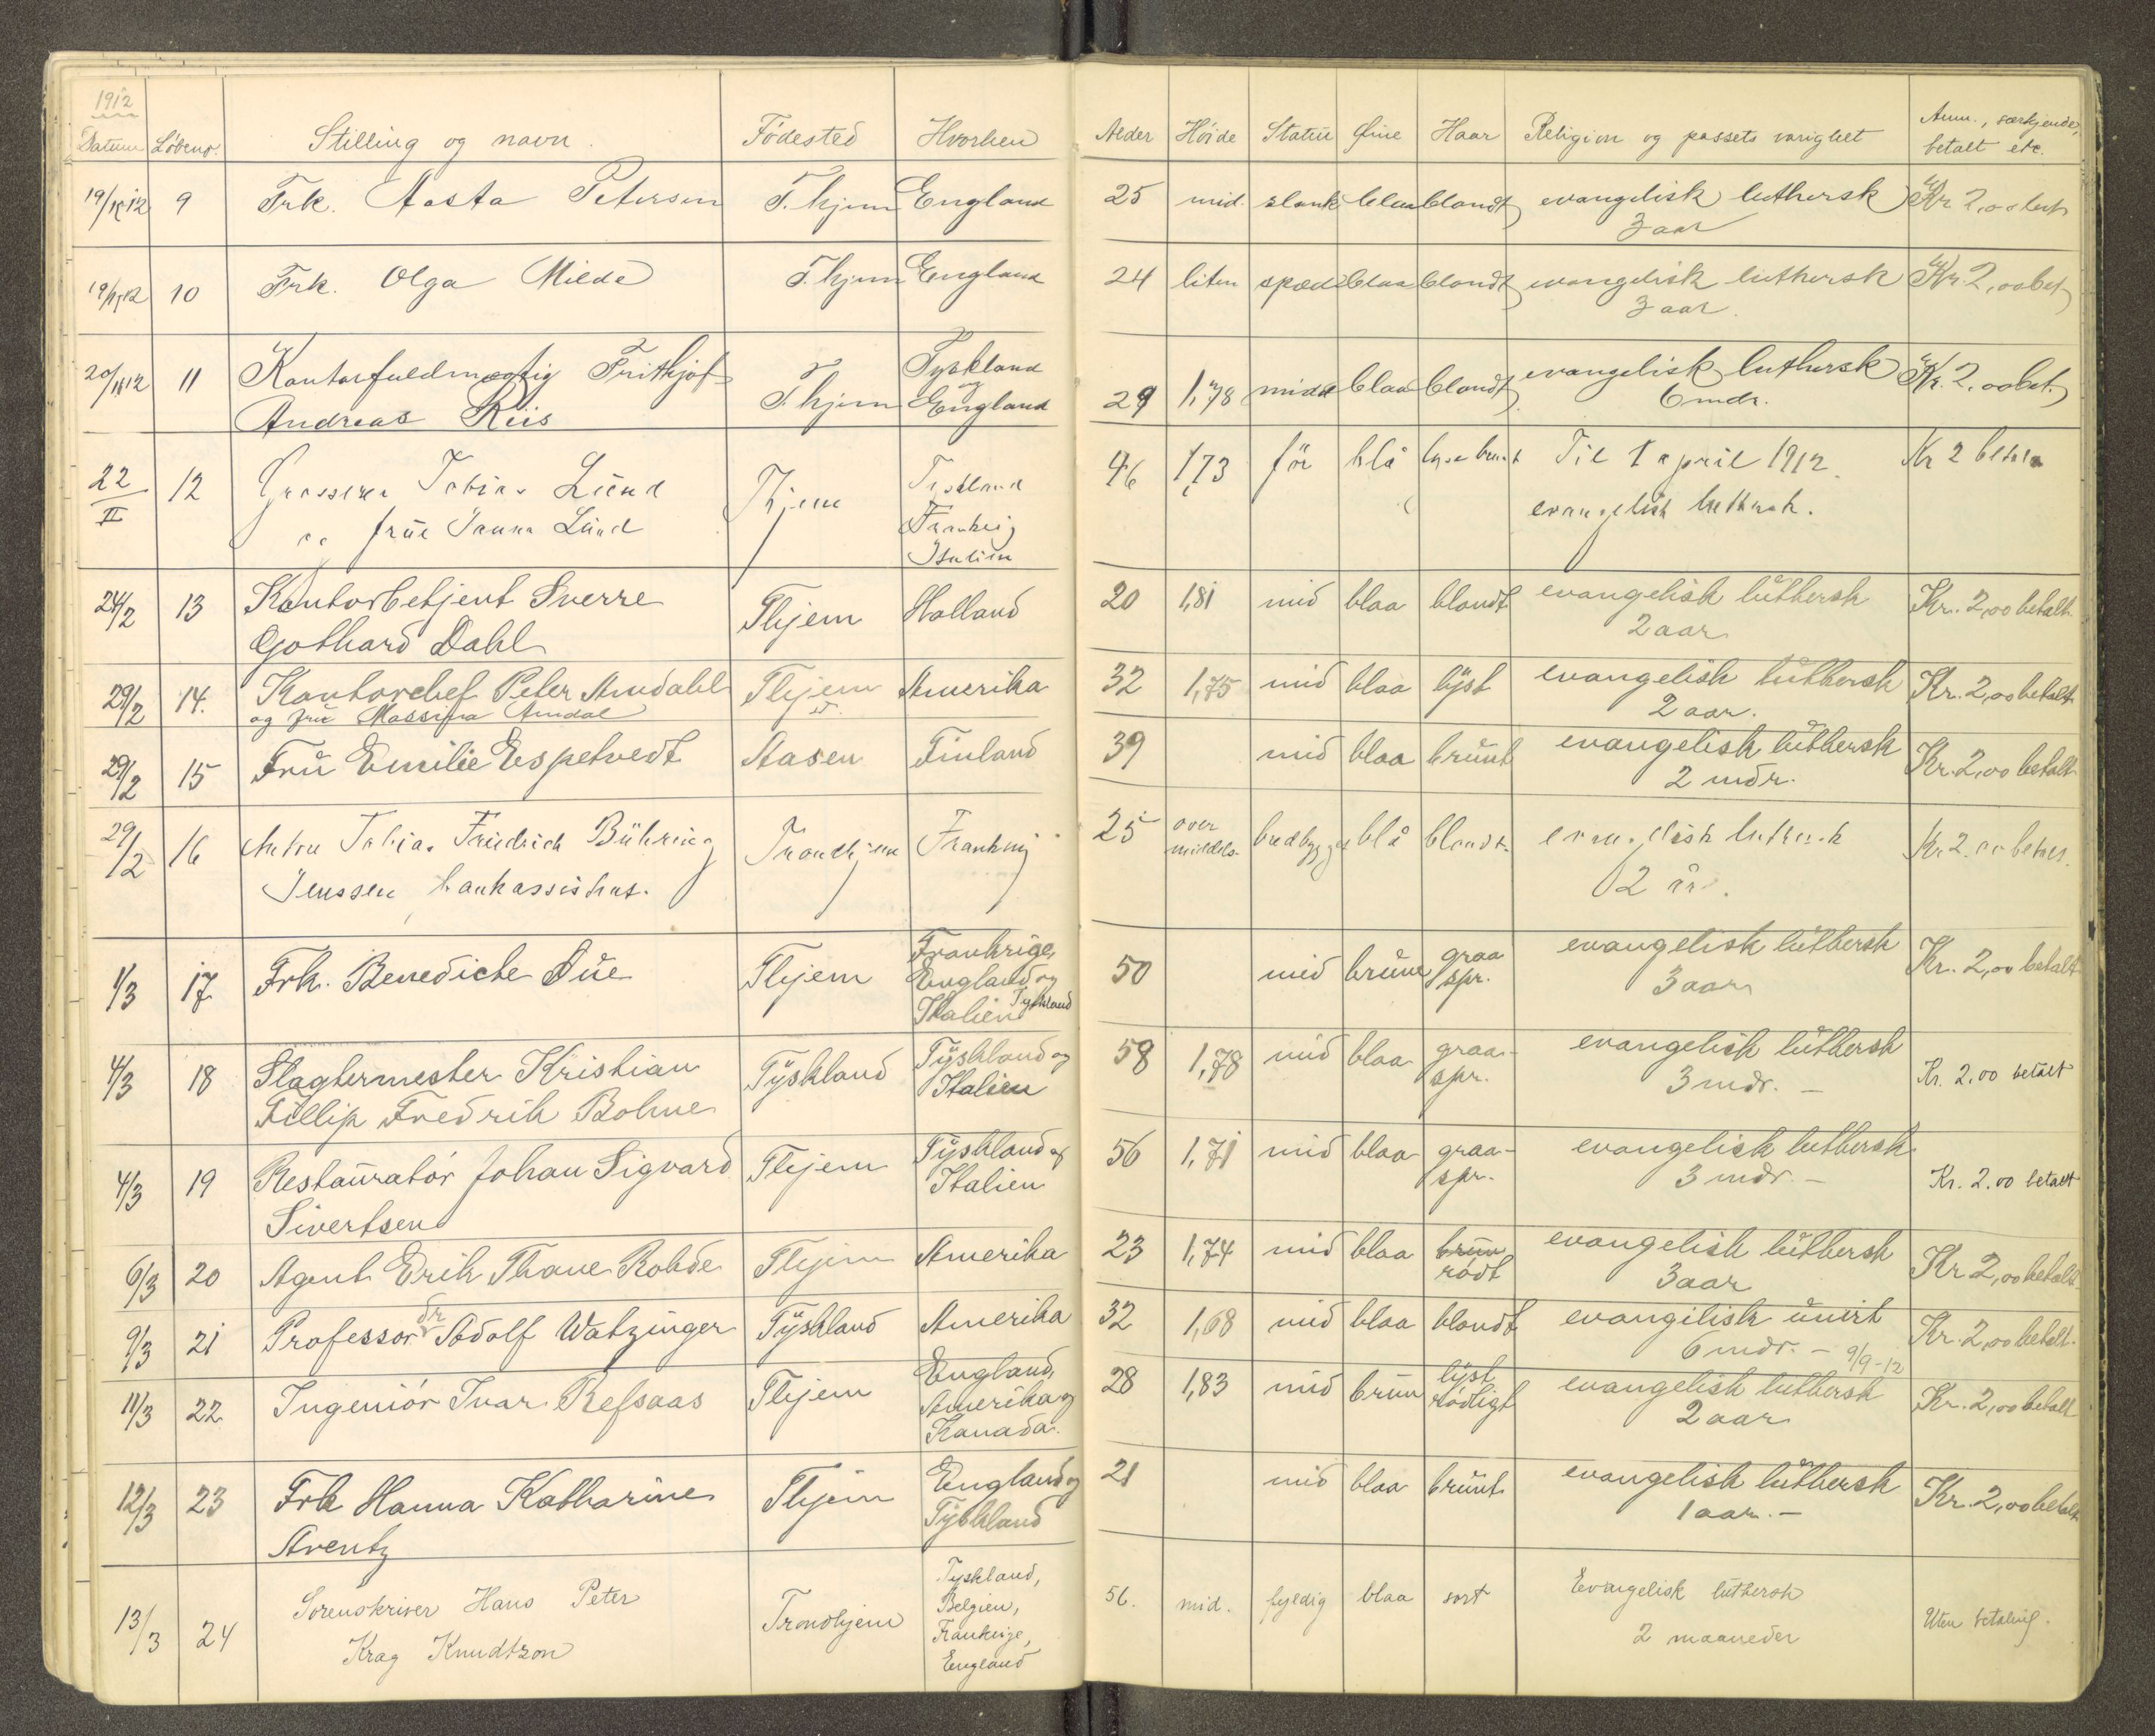 1912
Datum Löbeno. Stilling og navn Födested Hvorhen Alder Höide Statur Øine Haar Religion og passets varighet Anm., særkjende, betalt etc.
19/II 12 9 Frk. Aasta Petersen T.hjem England 25 mid. slank blaa blondt evangelisk luthersk Kr 2,00 bet
3 aar
19/II 12 10 Frk. Olga Milde T.hjem England 24 liten spæd blaa blondt evangelisk luthersk Kr. 2,00 bet
3 aar.
20/II 12 11 Kontorfuldmægtig Frithjof T.hjem Tyskland og England 29 1,78 midd blaa blondt evangelisk luthersk Kr. 2.00 bet.
Andreas Riis 6 mdr.
22/II 12 Grosserer Tobias Lund Thjem Tyskland 46 1,73 för blå lysebrunt Til 1 april 1912. Kr 2 betalt
og frue Lund Frankrig evangelisk luthersk.
Italien
24/2 13 Kontorbetjent Sverre Thjem Holland 20 1,81 mid blaa blondt evangelisk luthersk Kr. 2,00 betalt.
Gothard Dahl 2 aar
29/2 14. Kontorchef Peter Amdahl Thjem Amerika 32 1,75 mid blaa lyst evangelisk luthersk Kr. 2,00 betalt
og frue Amdal 2 aar.
29/2 15 Fru Emilie Espetvedt Aasen Finland 39 mid blaa brunt evangelisk luthersk Kr. 2,00 betalt
2 mdr.
29/2 16 Anton Tobias Fredrich Bühring Trondhjem Frankrig 25 over middels- bredbygget blå blondt. evangelisk luthersk Kr 2.00 betalt.
Jenssen bankassistent. 2 år.
1/3 17 Frk. Benedicte Due Thjem Frankrige, 50 mid brune graa spr. evangelisk luthersk Kr. 2,00 betalt
England og 3 aar
Italien Tyskland
4/3 18 Slagtermester Kristian Tyskland Tyskland og 58 1,78 mid blaa graa- spr. evangelisk luthersk Kr. 2.00 betalt
Fillip Fredrik Bohne Italien 3 mdr. -
4/3 19 Restauratör Johan Sigvard Thjem Tyskland og 56 1,71 mid blaa graa- spr. evangelisk luthersk Kr. 2.00 betalt
Sivertsen Italien 3 mdr. -
6/3 20 Agent Erik Thane Rohde Thjem Amerika 23 1,74 mid blaa brun rödt evangelisk luthersk Kr 2,00 betalt
3 aar
9/3 21 Professor dr Adolf Watzinger Tyskland Amerika 32 1,68 mid blaa blondt evangilisk unirt Kr. 2,00 betalt.
6 mdr. - 9/9-12
11/3 22 Ingeniör Ivar Refsaas Thjem England, 28 1,83 mid brun lyst rödligt evangelisk luthersk Kr. 2,00 betalt
Amerika og 2 aar
Kanada.
12/3 23 Frk Hanna Katharine Thjem England og 21 mid blaa brunt evangelisk luthersk Kr. 2,00 betalt
Arentz Tyskland 1 aar. -
13/3 24 Sorenskriver Hans Peter Trondhjem Tyskland, 56. mid. fyldig blaa sort Evangelisk luthersk Uten betaling.
Krag Knudtzon Belgien, 2 maaneder
Frankrige,
England